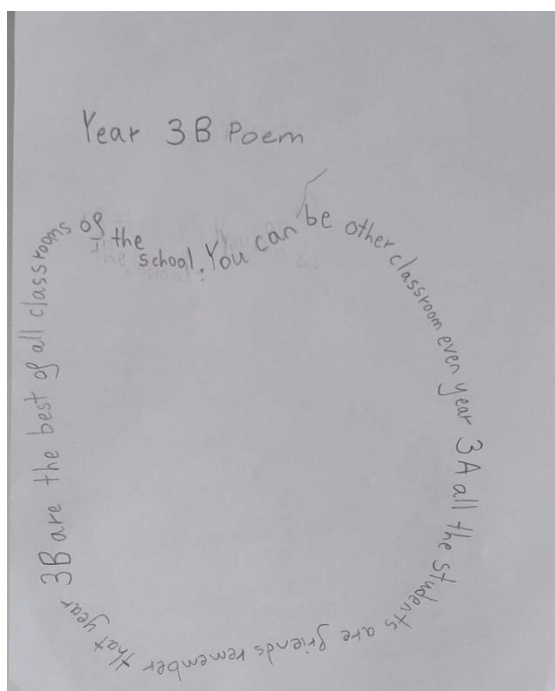 Year 3B Poem
You can be other classroom even year 3A all the students are friends remember that year 3B are the best of all classrooms of the school.